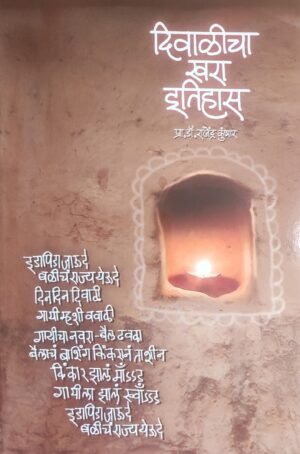 दिवाळीचा
खरा
इतिहास
प्रा.डॉ. राजेंद्र कुंभार
इडापिडा जाऊदे
बळीचं राज्य येऊदे
दिन दिन दिवाळी
गायी म्हशी ववाळी
गायीचा नवरा-बैल ढवळा
बैलाचं बाशिंग किंकरानं ताशीन
किंकार झालं
गायीला झालं
इडापिडा जाऊदे
बळीचं राज्य येऊदे